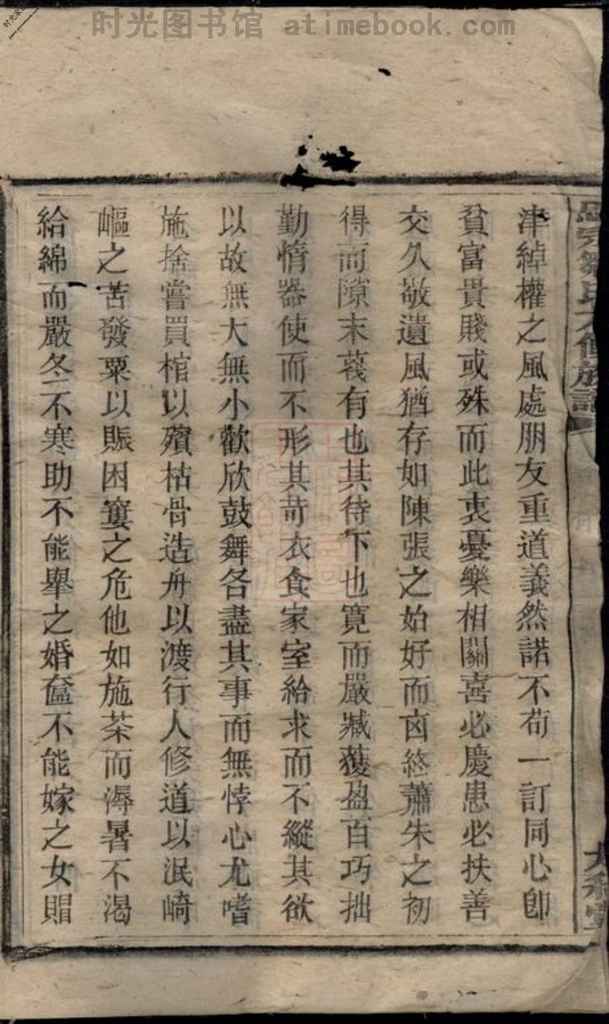 时光图书馆 atimebook.com
津綽權之風處朋友重道義然諾不苟一訂同心卽
貧富貴賤或殊而此衷憂樂相關喜必慶患必扶善
交久敬遺風猶存如陳張之始好而卤終蕭朱之初
得而隙末蔑有也其待下也寛而嚴臧獲盈百巧拙
勤惰器使而不形其苛衣食家室給求而不縱其欲
以故無大無小歡欣鼓舞各盡其事而無悖心尤嗜
施捨嘗買棺以殯枯骨造舟以渡行人修道以泯崎
嶇之苦發粟以賑困窶之危他如施茶而溽暑不渴
給綿而嚴冬不寒助不能舉之婚奩不能嫁之女賵